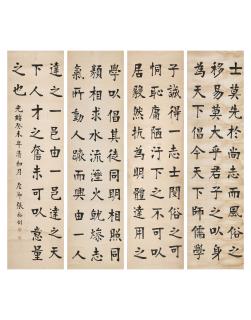 士莫先於尚志而風俗之
易移莫大乎君子之以身
為天下倡今天下師儒學
子誠得一志士閔俗之可
恫恥庸陋汙下之不可
居毅然抗為明體達用之
學以倡其徒同明相照同
類相求水流溼火就燥志
氣所動人蹶而興由一人
達之一邑由一邑達之天
下人才之奮未可以意量
之也
光緒癸未年清和月 張裕釗